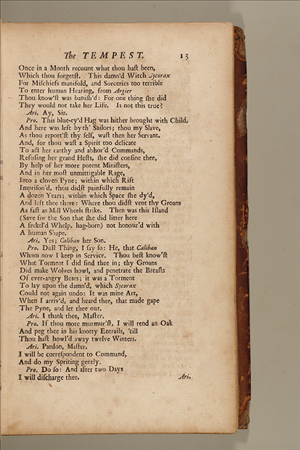 The TEMPEST. 13
Once in a Month recount what thou hast been,
Which thou forgetst. This damn'd Witch Sycorax
For Mischiefs manifold, and Sorceries too terrible
To enter human Hearing, from Argier
Thou know'st was banish'd: For one thing she did
They would not take her Life. Is not this true?
Ari. Ay, Sir.
Pro. This blue-ey'd Hag was hither brought with Child,
And here was left by th' Sailors; thou my Slave,
As thou report'st thy self, wast then her Servant.
And, for thou wast a Spirit too delicate
To act her earthy and abhor'd Commands,
Refusing her grand Hests, she did confine thee,
By help of her more potent Ministers,
And in her most unmitigable Rage,
Into a cloven Pyne; within which Rift
Imprison'd, thou didst painfully remain
A dozen Years; within which Space she dy'd,
And left thee there: Where thou didst vent thy Groans
As fast as Mill Wheels strike. Then was this Island
(Save for the Son that she did litter here
A freckel'd Whelp, hag-born) not honour'd with
A human Shape.
Ari. Yes; Caliban her Son.
Pro. Dull Thing, I say so: He, that Caliban
Whom now I keep in Service. Thou best know'st
What Torment I did find thee in; thy Groans
Did make Wolves howl, and penetrate the Breasts
Of ever-angry Bears; it was a Torment
To lay upon the damn'd, which Sycorax
Could not again undo: It was mine Art,
When I arriv'd, and heard thee, that made gape
The Pyne, and let thee out.
Ari. I thank thee, Master.
Pro. If thou more murmur'st, I will rend an Oak
And peg thee in his knotty Entrails, 'till
Thou hast howl'd away twelve Winters.
Ari. Pardon, Master.
I will be correspondent to Command,
And do my Spriting gently.
Pro. Do so: And after two Days
I will discharge thee. Ari.